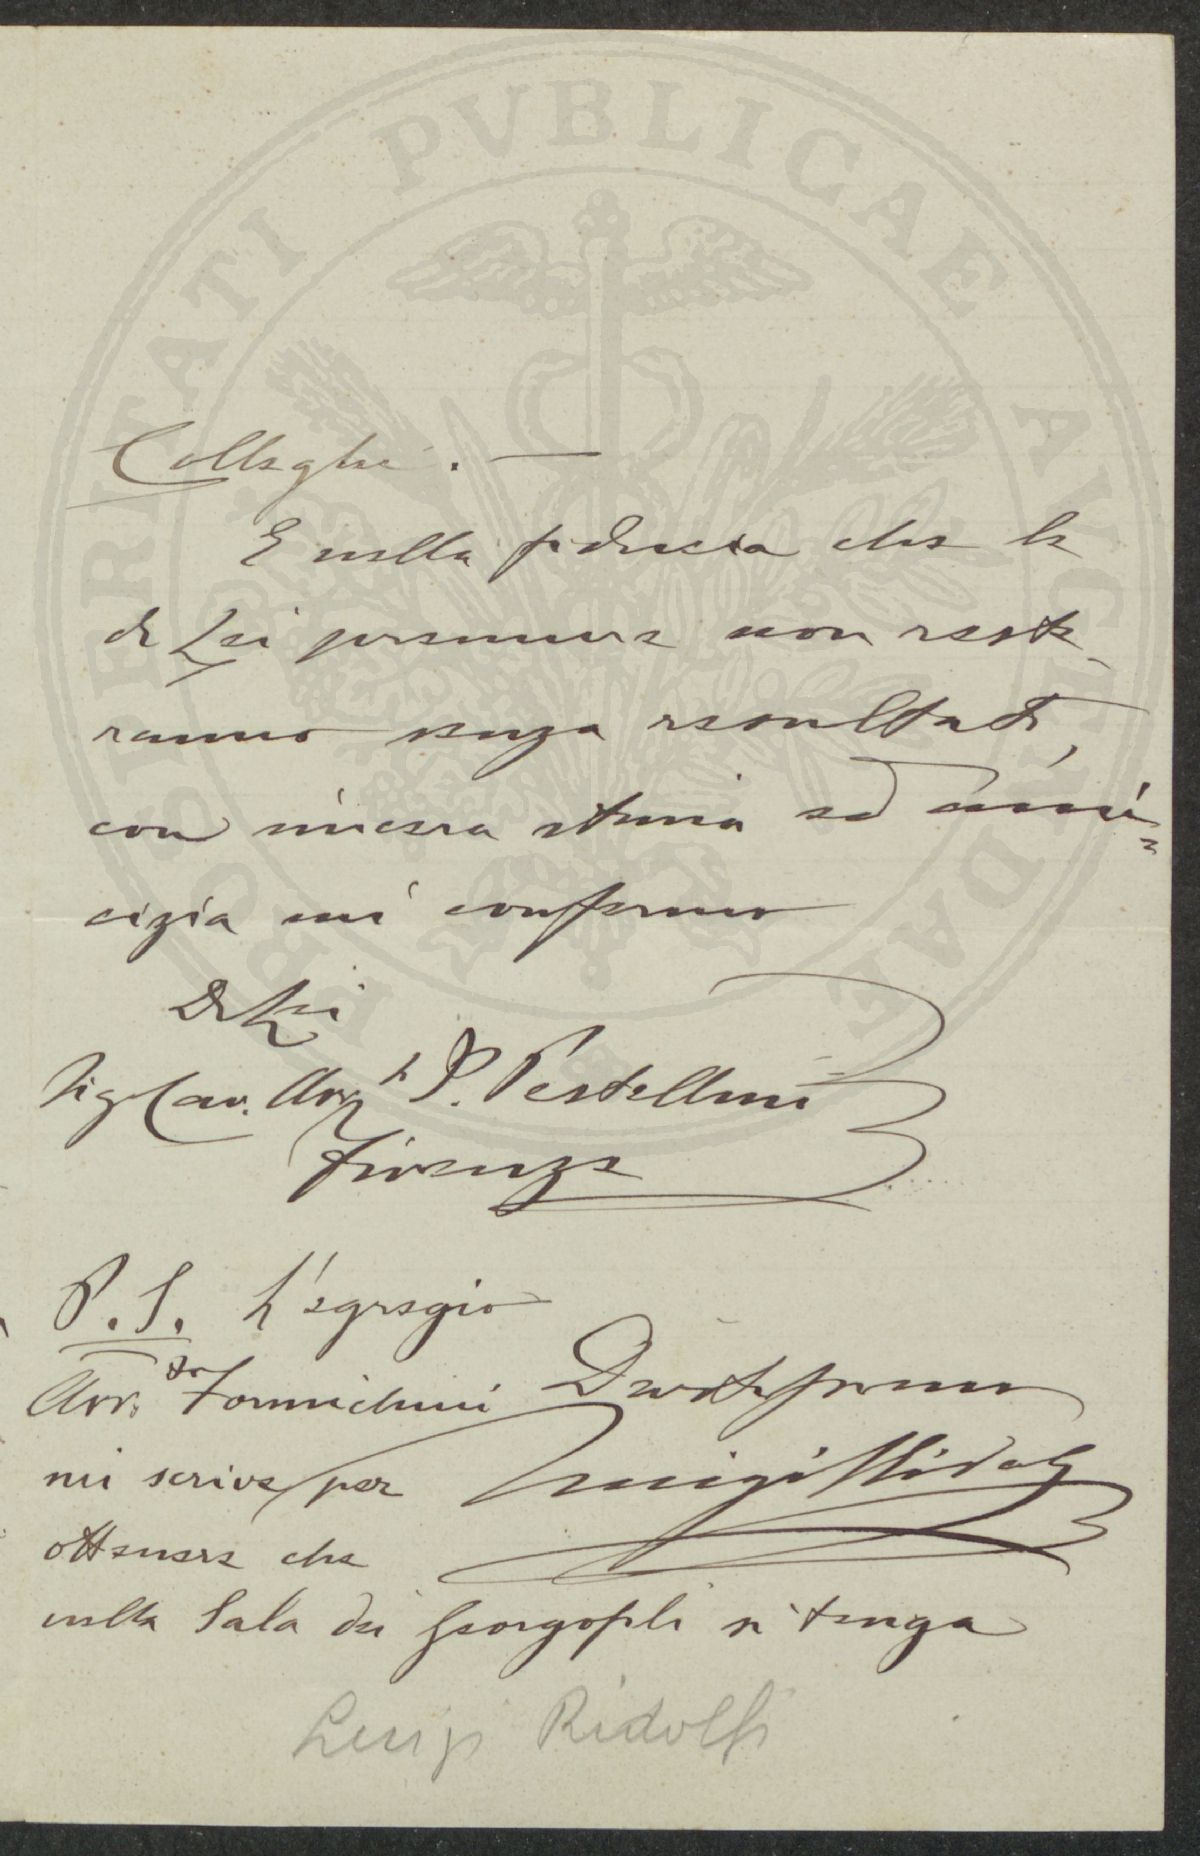 Colleghi. —
E nella fiducia che le
di Lei premure non reste-
ranno senza resultati,
con sincera stima ed ami=
cizia mi confermo
Di Lei
Sig. Cav. Avv. P. Pestellini
Firenze
P.S. L'egregio
Avv. Formichini
mi scrive per
ottenere che
nella Sala dei Georgofili si tenga
Devotissimo
Luigi Ridolfi
Luigi Ridolfi
PROSPERITATI PVBLICAE AVGENDAE